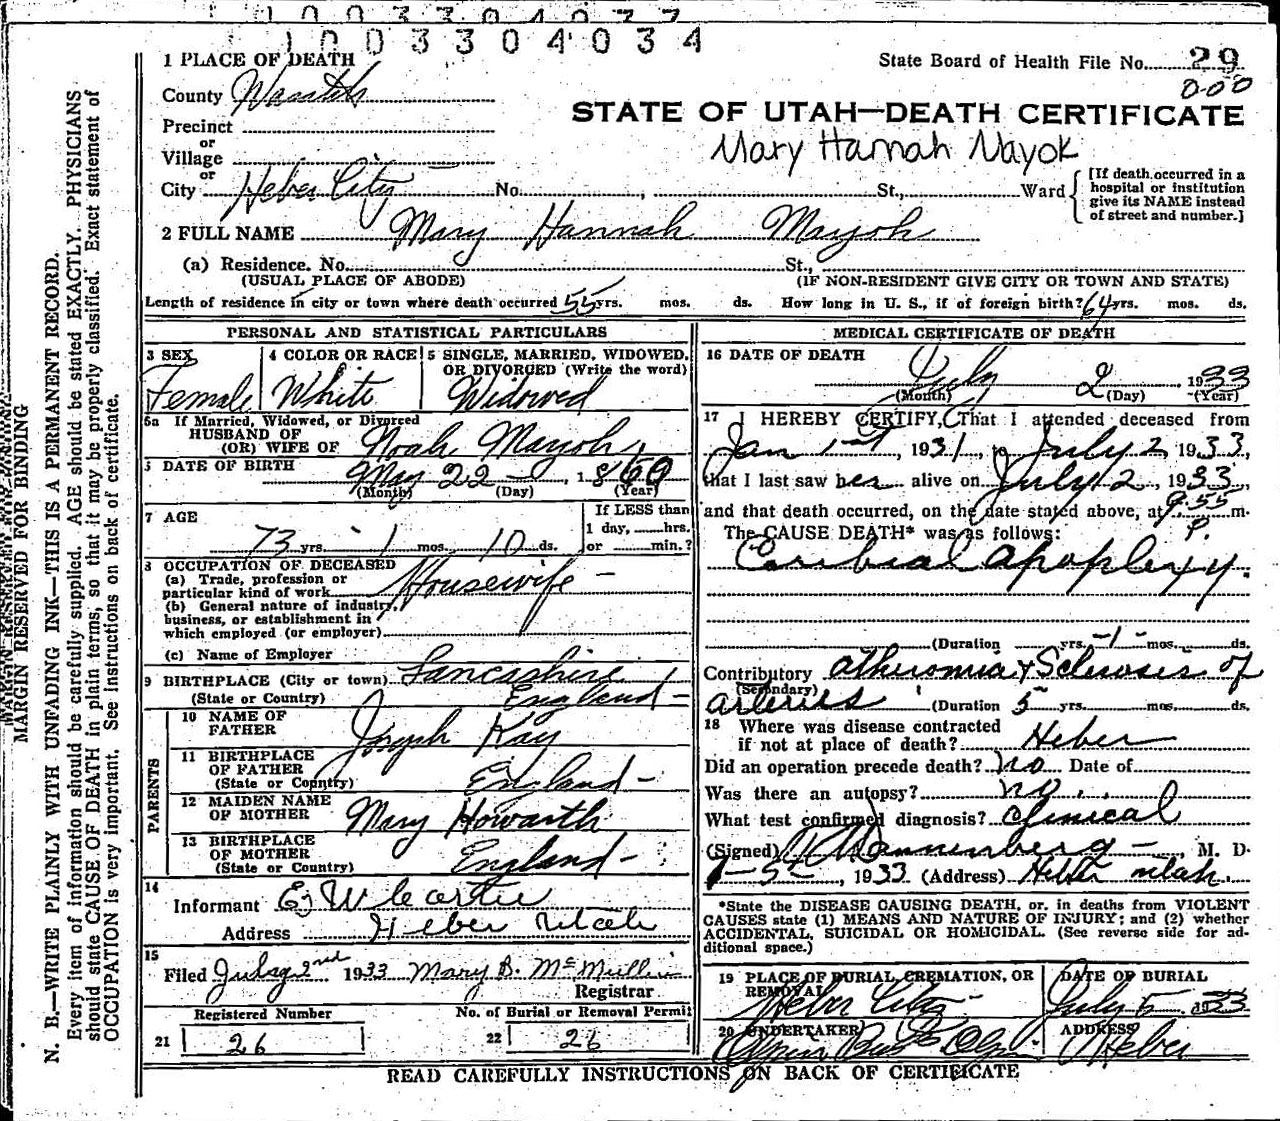 1003304034
1 PLACE OF DEATH
State Board of Health File No. 29
000
County Wasatch
STATE OF UTAH—DEATH CERTIFICATE
Precinct
or
Mary Hannah Mayok
Village
or
City Heber City No. , St., Ward
[If death occurred in a hospital or institution give its NAME instead of street and number.]
2 FULL NAME Mary Hannah Mayoh
(a) Residence. No. St.,
(USUAL PLACE OF ABODE) (IF NON-RESIDENT GIVE CITY OR TOWN AND STATE)
Length of residence in city or town where death occurred 55 yrs. mos. ds. How long in U. S., if of foreign birth? 64 yrs. mos. ds.
PERSONAL AND STATISTICAL PARTICULARS
3 SEX
Female
4 COLOR OR RACE
White
5 SINGLE, MARRIED, WIDOWED,
OR DIVORCED (Write the word)
Widowed
5a If Married, Widowed, or Divorced
HUSBAND OF
(OR) WIFE OF Noah Mayoh
DATE OF BIRTH
May 22 1860
(Month) (Day) (Year)
7 AGE
73 yrs. 1 mos. 10 ds.
If LESS than
1 day, hrs.
or min.?
8 OCCUPATION OF DECEASED
(a) Trade, profession or
particular kind of work Housewife
(b) General nature of industry,
business, or establishment in
which employed (or employer)
(c) Name of Employer
9 BIRTHPLACE (City or town) Lancashire
(State or Country) England
PARENTS
10 NAME OF
FATHER Joseph Kay
11 BIRTHPLACE
OF FATHER
(State or Country) England
12 MAIDEN NAME
OF MOTHER Mary Howarth
13 BIRTHPLACE
OF MOTHER
(State or Country) England
14
Informant
Address Heber Utah
15
Filed July 2nd 1933 Mary B. McMullin
Registrar
Registered Number
21 26
No. of Burial or Removal Permit
22 26
MEDICAL CERTIFICATE OF DEATH
16 DATE OF DEATH
July 2 1933
(Month) (Day) (Year)
17 I HEREBY CERTIFY, That I attended deceased from
Jan 1st, 1931, to July 2 1933,
that I last saw her alive on July 2, 1933,
and that death occurred, on the date stated above, at 9.55 P. m.
The CAUSE DEATH* was as follows:
Ceribial apoplexy.
(Duration yrs. -1- mos. ds.
Contributory atheromia & Sclerosis of
(Secondary)
arteries (Duration 5 yrs. mos. ds.
18 Where was disease contracted
if not at place of death? Heber
Did an operation precede death? no Date of
Was there an autopsy? no.
What test confirmed diagnosis? Clinical
(Signed) Dannenberg, M. D.
1933 (Address) Heber Utah.
*State the DISEASE CAUSING DEATH, or, in deaths from VIOLENT
CAUSES state (1) MEANS AND NATURE OF INJURY; and (2) whether
ACCIDENTAL, SUICIDAL OR HOMICIDAL. (See reverse side for ad-
ditional space.)
19 PLACE OF BURIAL, CREMATION, OR
REMOVAL
Heber City
DATE OF BURIAL
July 5 1933
20 UNDERTAKER
ADDRESS
Heber
READ CAREFULLY INSTRUCTIONS ON BACK OF CERTIFICATE
MARGIN RESERVED FOR BINDING
N. B.—WRITE PLAINLY WITH UNFADING INK—THIS IS A PERMANENT RECORD.
Every item of information should be carefully supplied. AGE should be stated EXACTLY. PHYSICIANS
should state CAUSE OF DEATH in plain terms, so that it may be properly classified. Exact statement of
OCCUPATION is very important. See instructions on back of certificate.